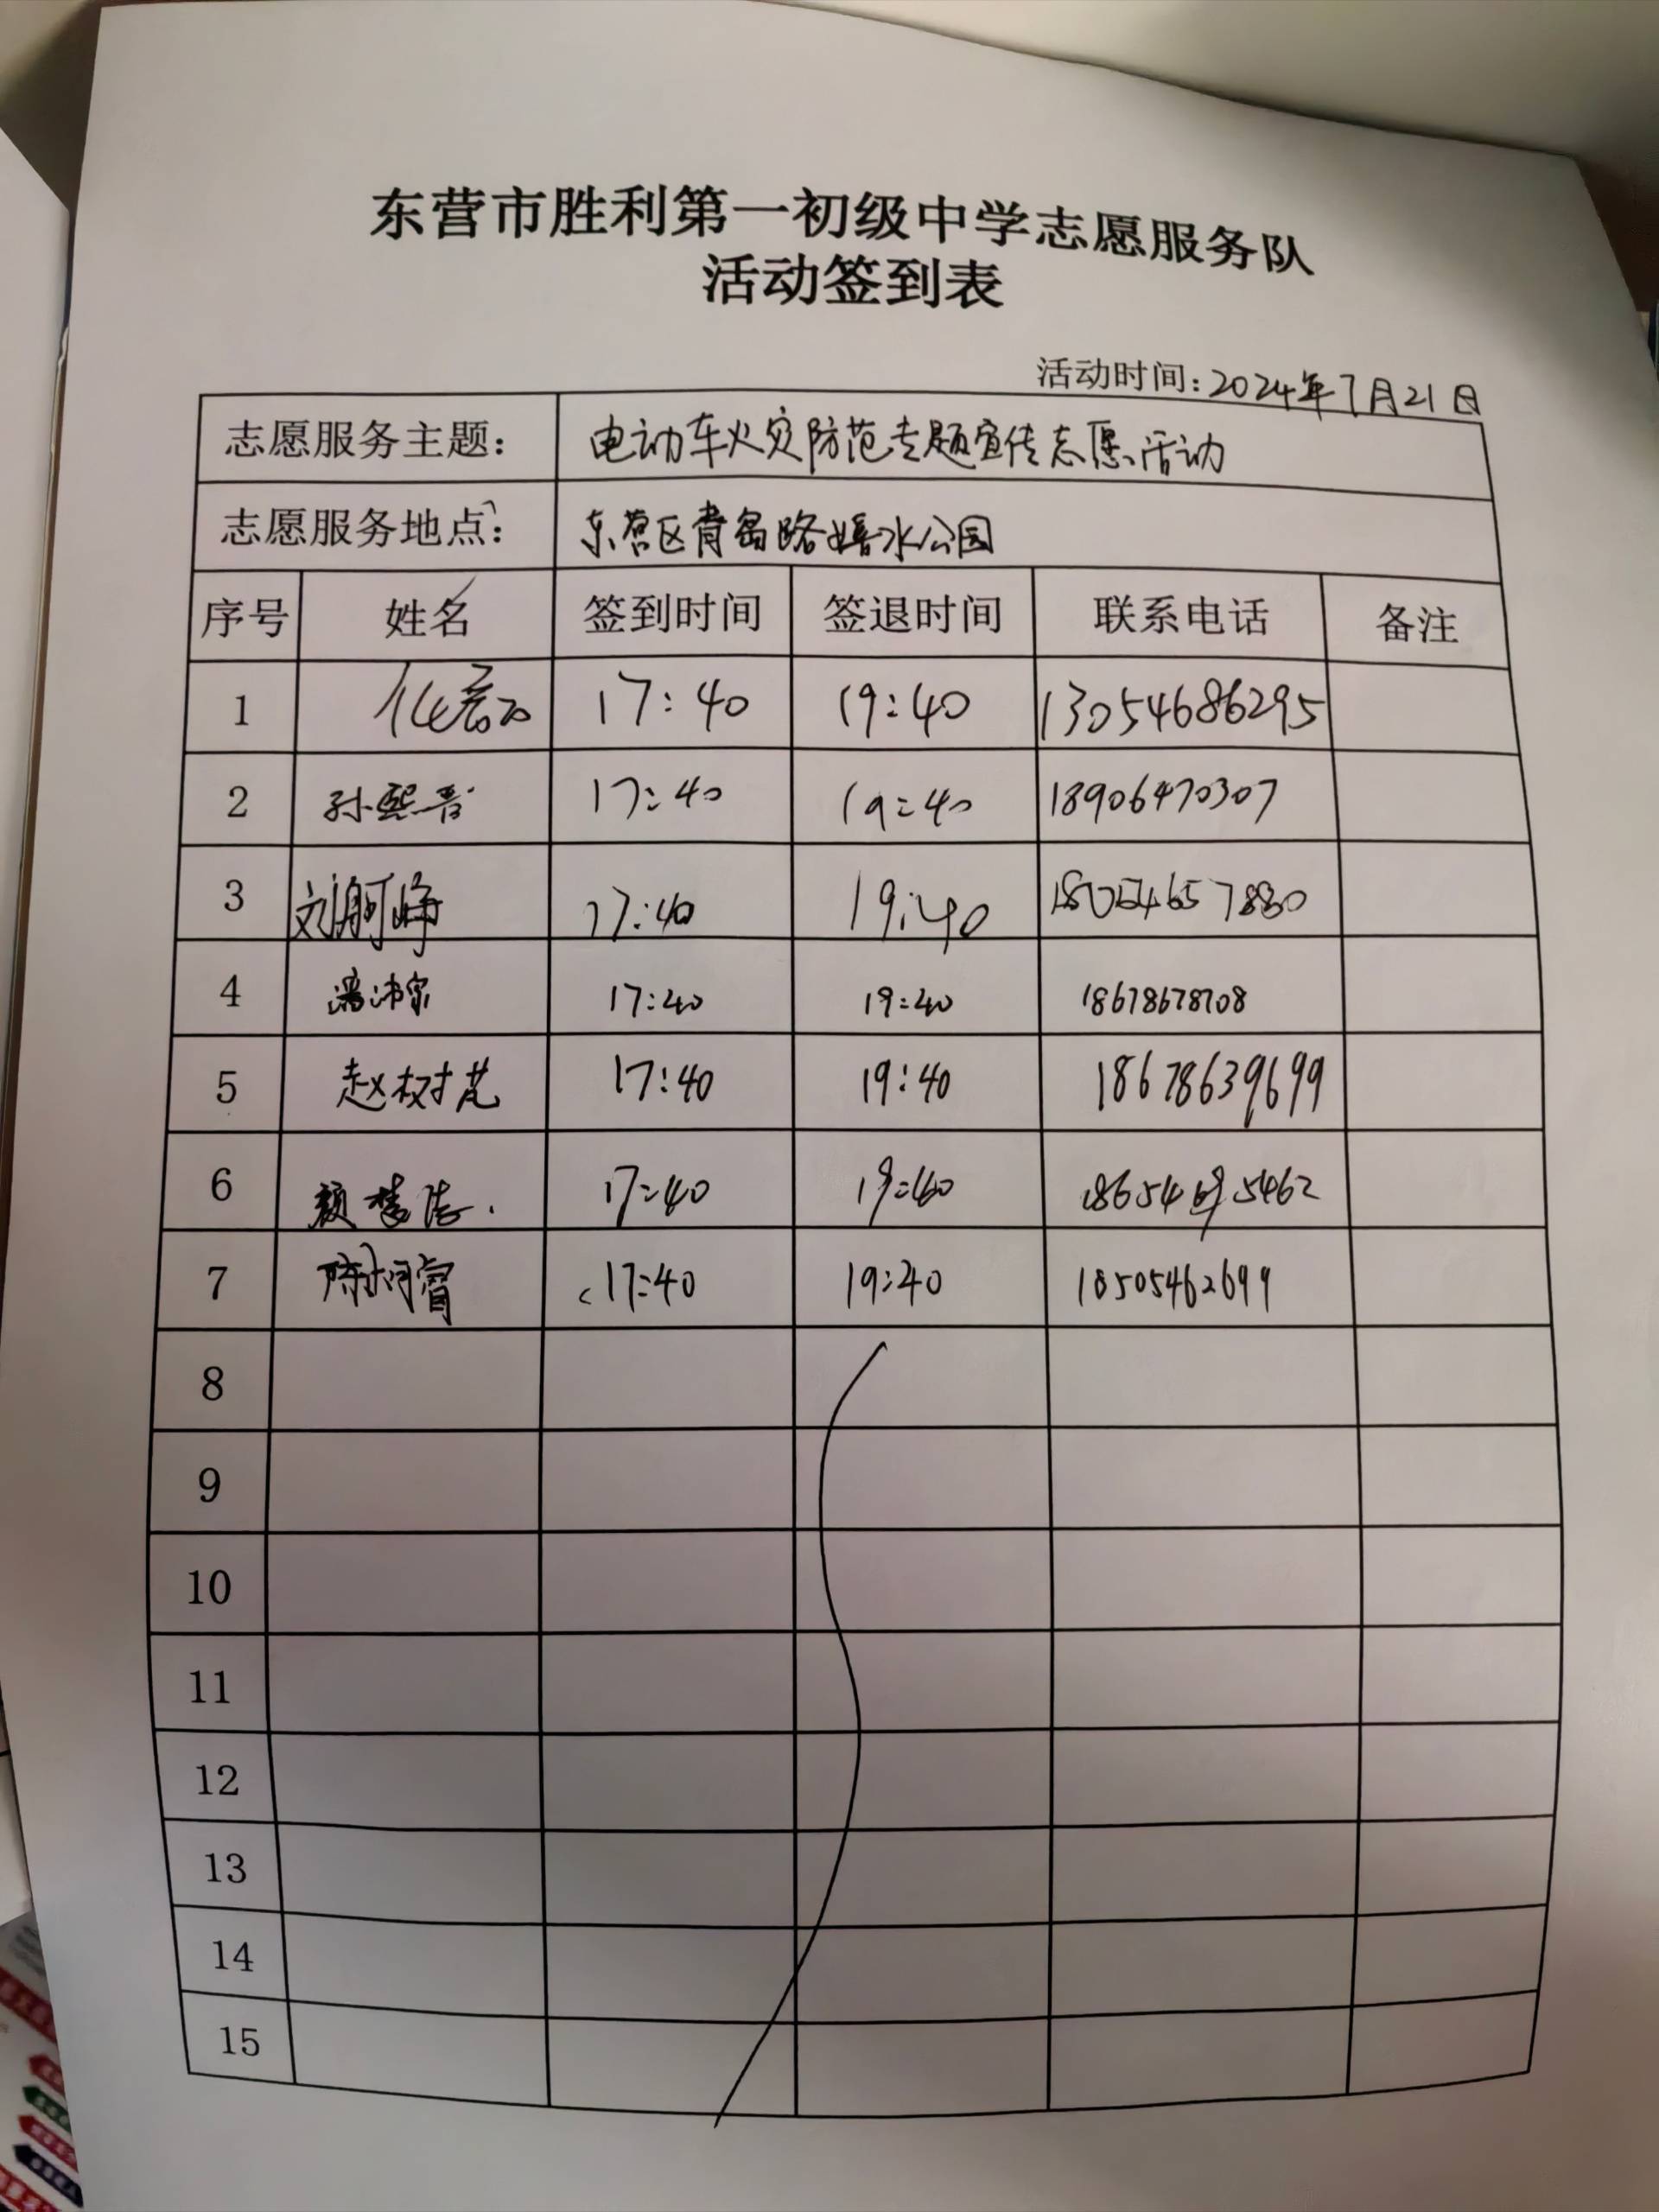 东营市胜利第一初级中学志愿服务队
活动签到表
活动时间：2024年7月21日
志愿服务主题： 电动车火灾防范专题宣传志愿活动
志愿服务地点： 东营区青岛路嬉水公园
序号 姓名 签到时间 签退时间 联系电话 备注
1 17:40 19:40 13054686295
2 孙熙晋 17:40 19:40 18906470307
3 17:40 19:40
4 潘沛宗 17:40 19:40 18678678708
5 赵树芃 17:40 19:40 18678639699
6 颜 17:40 19:40
7 17:40 19:40 18505462699
8
9
10
11
12
13
14
15